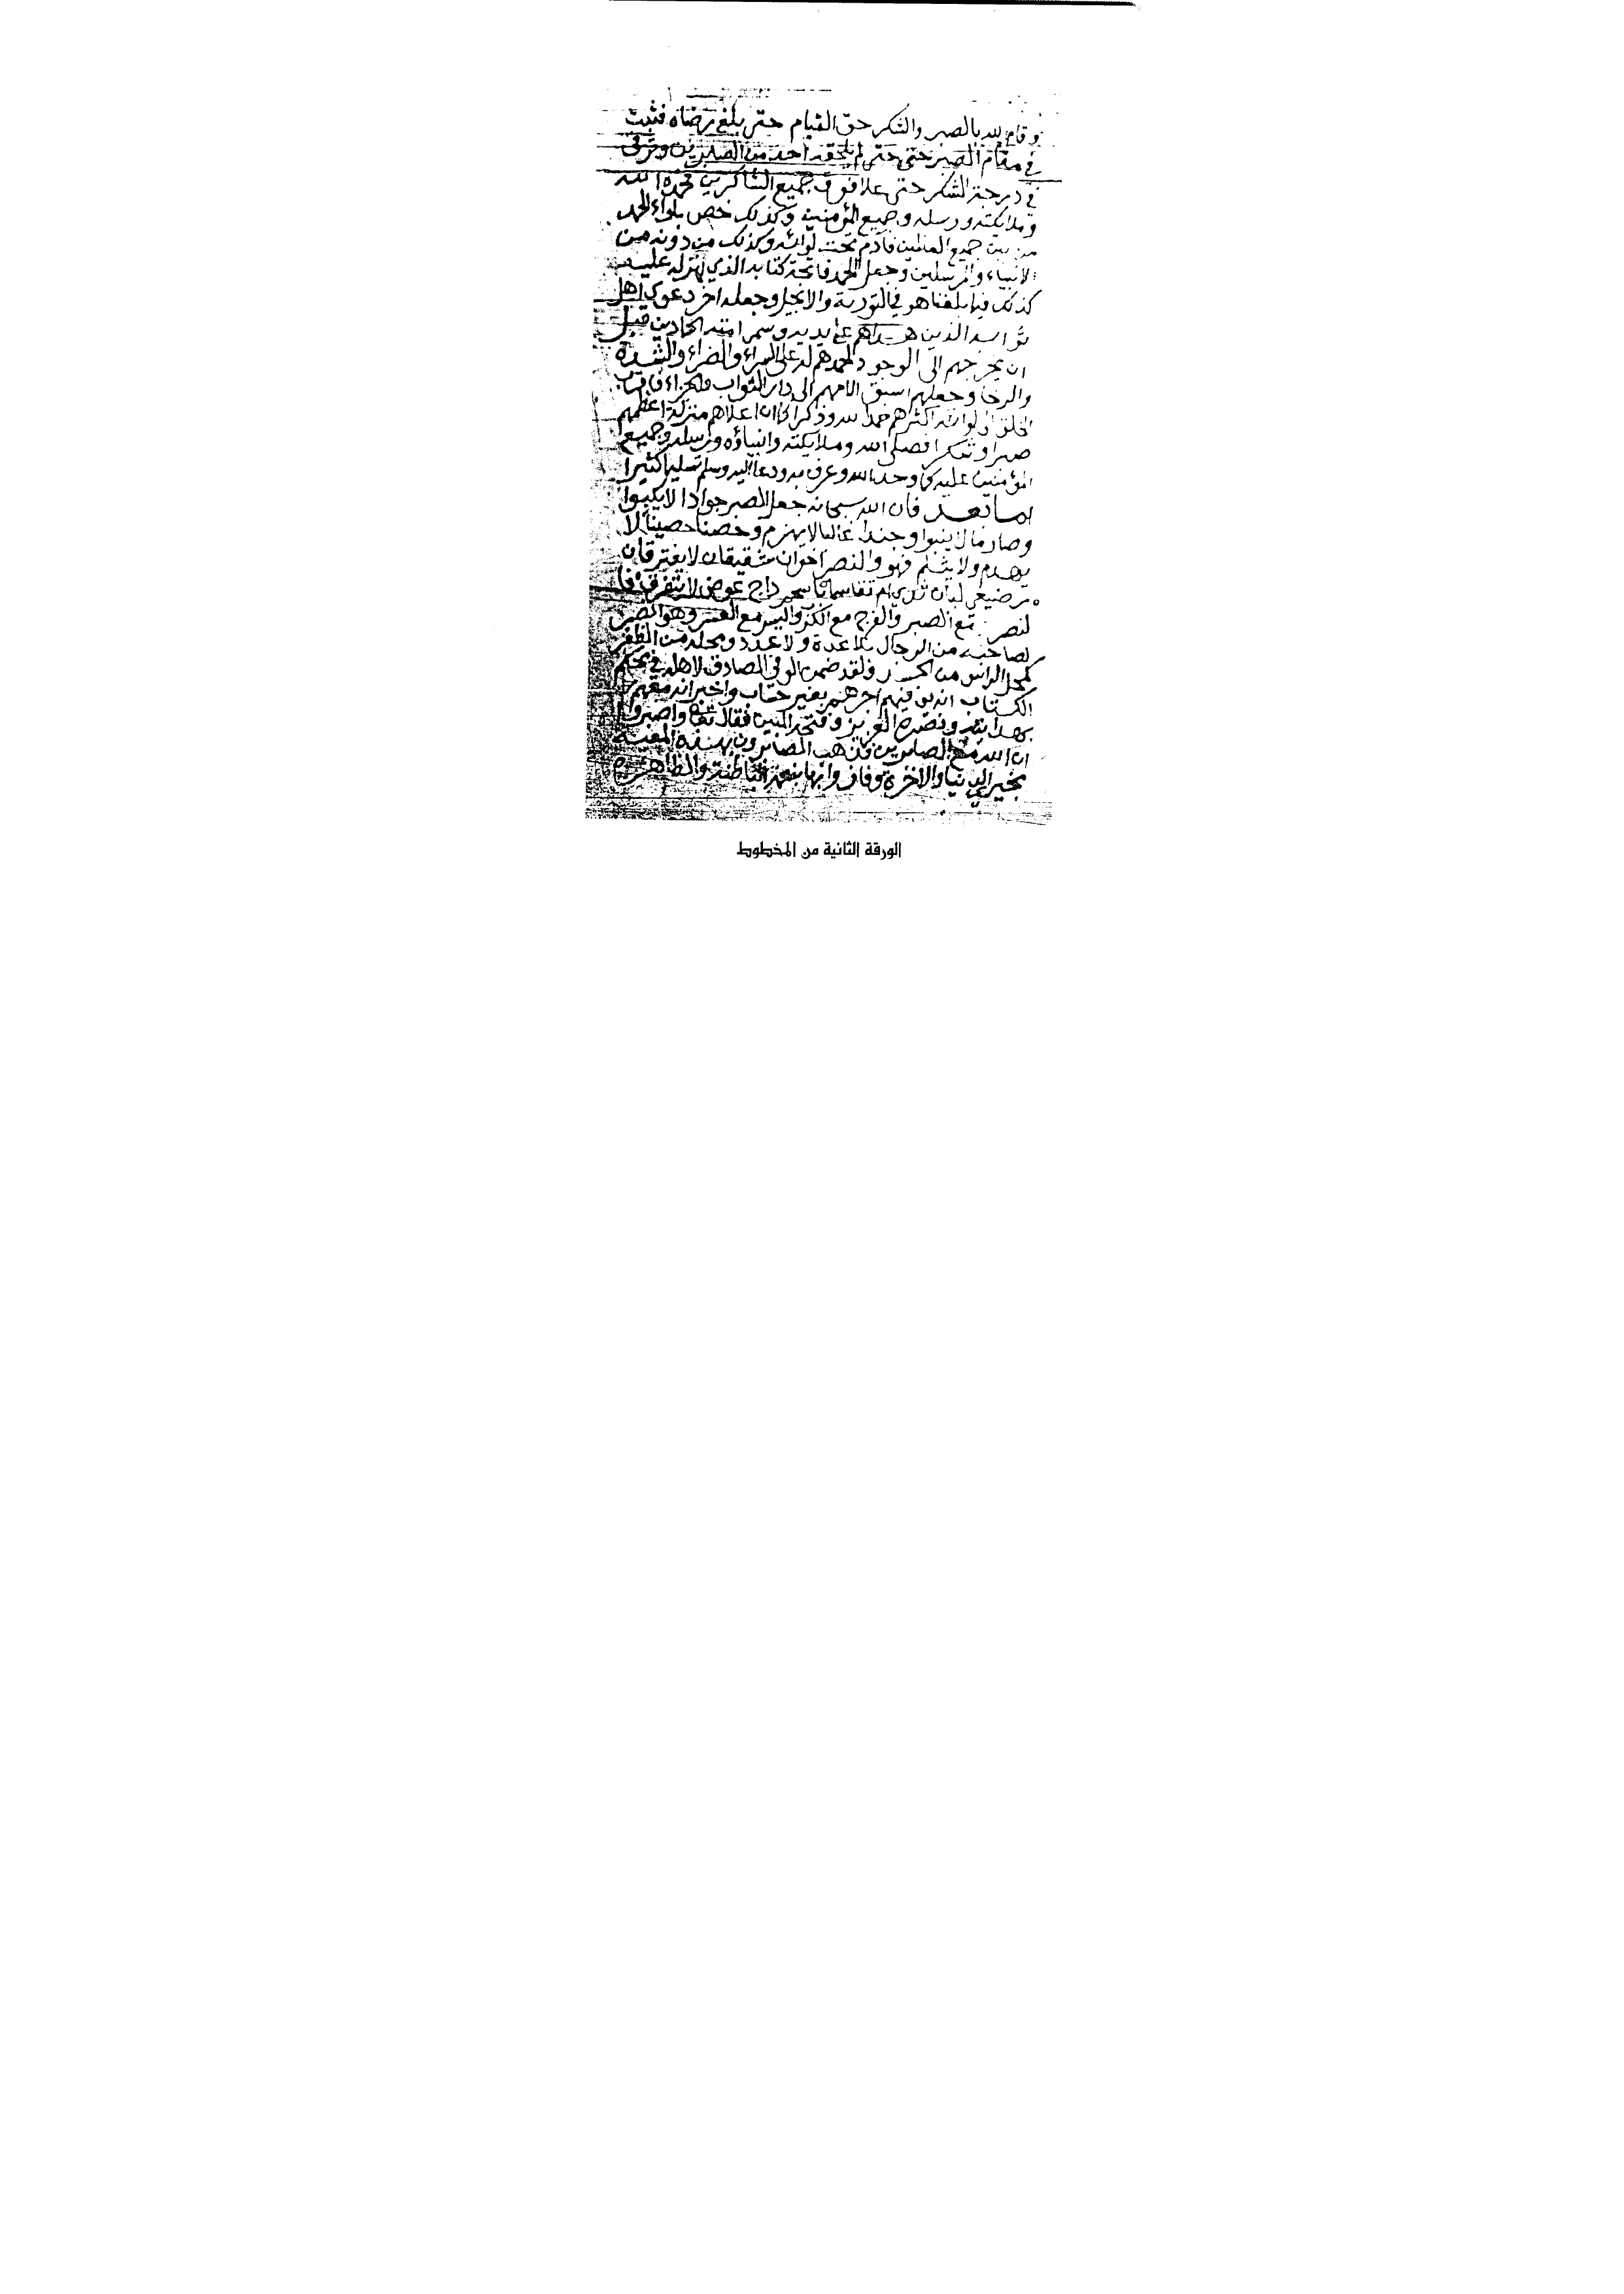 وقام لله بالصبر والشكر حق القيام حتى بلغ رضاه فثبت
في مقام الصبر حتى حتى لم يلحقه احد من الصابرين وترقى
في درجة الشكر حتى علا فوق جميع الشاكرين فحمده الله
وملايكته ورسله وجميع المؤمنين وكذلك خص بلواء الحمد
من بين جميع العالمين فآدم تحت لوائه وكذلك من دونه من
الانبياء والمرسلين وجعل الحمد فاتحة كتابه الذي انزله عليه
كذلك فيما بلغنا هو في التورية والانجيل وجعله اخر دعوى اهل
الذين هداهم على يديه وسمى امته الحمادين قبل
ان يخرجهم الى الوجود لحمدهم له على السراء والضراء والشدة
والرخا وجعلهم اسبق الامم الى دار الثواب والجزاء فاقرب
الخلق الى لوائه اكثرهم حمدا لله وذكرا كما ان اعلاهم منزلة اعظمهم
صبرا وشكرا فصلى الله وملايكته وانبياؤه ورسله وجميع
المؤمنين عليه كما وحد الله وعرف به ودعا اليه وسلم تسليما كثيرا
اما بعد فان الله سبحانه جعل الصبر جوادا لا يكبوا
وصارما لا ينبوا وجندا غالبا لا يهزم وحصنا حصينا لا
يهدم ولا يثلم فهو والنصر اخوان شقيقان لا يفترقان
رضيعي لبان ثدي ام تقاسما باسحم داج عوض لا نتفرق فا
لنصر مع الصبر والفرج مع الكرب واليسر مع العسر وهو انصر
لصاحبه من الرجال بلا عدة ولا عدد ومحله من الظفر
كمحل الراس من الجسد ولقد ضمن الوفي الصادق لاهله في محكم
الكتاب انه يوفيهم اجرهم بغير حساب واخبر انه معهم
بهدايته ونصره العزيز وفتحه المبين فقال تعالى واصبروا
ان الله مع الصابرين فذهب الصابرون بهذه المعية
بخيري الدنيا والاخرة وفازوا بها بنعمه الباطنة والظاهرة
الورقة الثانية من المخطوط